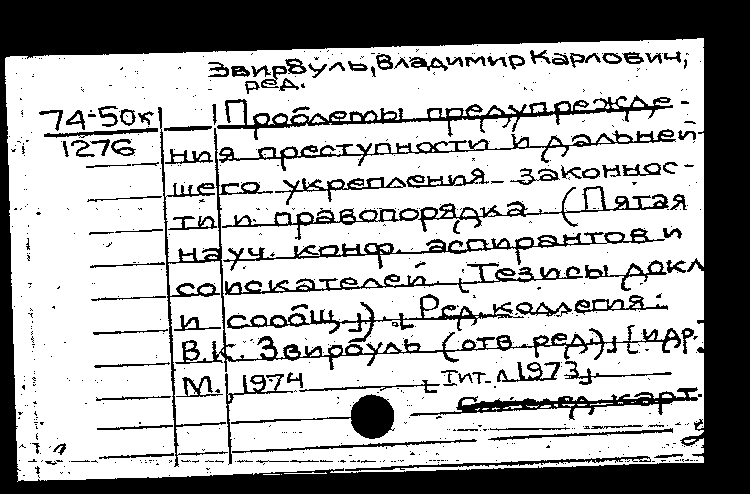 Звирбуль, Владимир Карлович,
ред.
74-50к Проблемы предупрежде-
1276 ния преступности и дальней-
шего укрепления законнос-
ти и правопорядка. (Пятая
науч. конф. аспирантов и
соискателей. [Тезисы докл.
и сообщ.]). [Ред. коллегия:
В.К. Звирбуль (отв. ред.), [и др.]
М., 1974 [Тит. л. 1973].
См. след. карт.